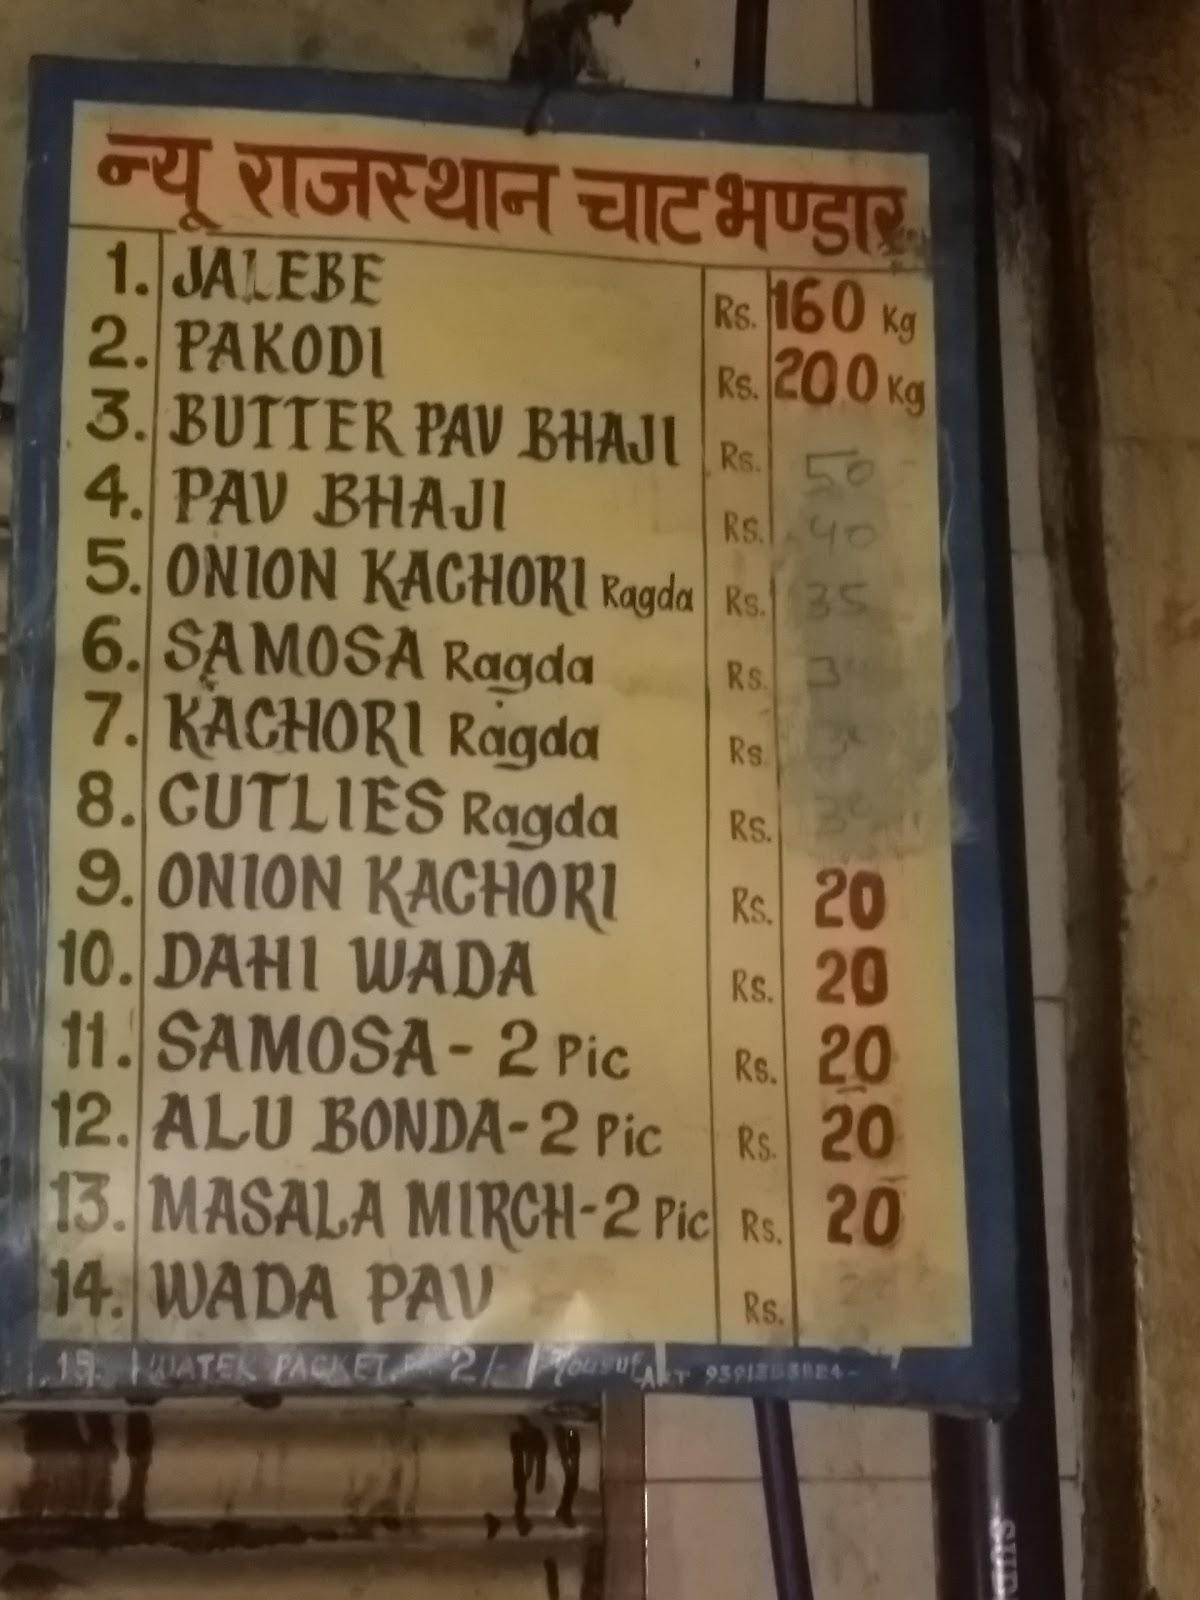 न्यू राजस्थान चाट भण्डार
1. JALEBE Rs. 160 Kg
2. PAKODI Rs. 200 Kg
3. BUTTER PAV BHAJI Rs. 50
4. PAV BHAJI Rs. 40
5. ONION KACHORI Ragda Rs. 35
6. SAMOSA Ragda Rs.
7. KACHORI Ragda Rs.
8. CUTLIES Ragda Rs.
9. ONION KACHORI Rs. 20
10. DAHI WADA Rs. 20
11. SAMOSA - 2 Pic Rs. 20
12. ALU BONDA - 2 Pic Rs. 20
13. MASALA MIRCH - 2 Pic Rs. 20
14. WADA PAV Rs.
15. WATER PACKET 2/- Yousuf ART